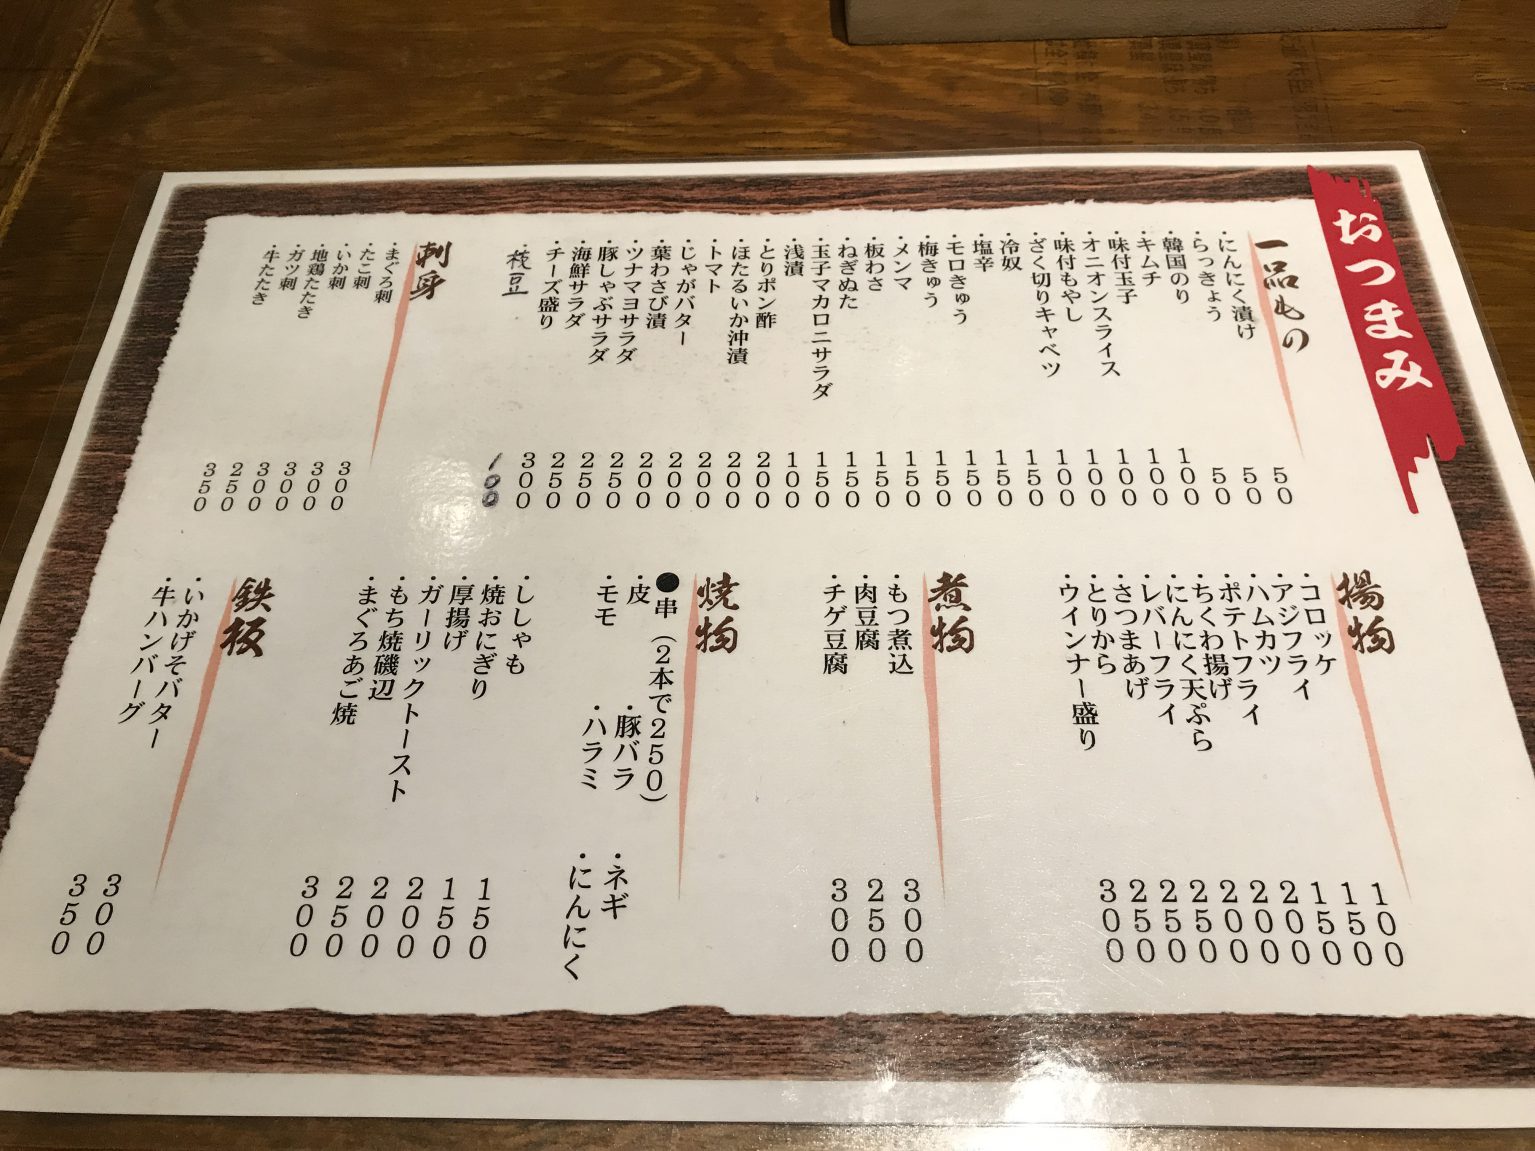 おつまみ
一品もの
・にんにく漬け 50
・らっきょう 50
・韓国のり 50
・キムチ 100
・味付玉子 100
・オニオンスライス 100
・味付もやし 100
・ざく切りキャベツ 100
・冷奴 150
・塩辛 150
・モロきゅう 150
・梅きゅう 150
・メンマ 150
・板わさ 150
・ねぎぬた 150
・玉子マカロニサラダ 150
・浅漬 100
・とりポン酢 200
・ほたるいか沖漬 200
・トマト 200
・じゃがバター 200
・葉わさび漬 200
・ツナマヨサラダ 250
・豚しゃぶサラダ 250
・海鮮サラダ 250
・チーズ盛り 300
・枝豆 100
刺身
・まぐろ刺 300
・たこ刺 300
・いか刺 300
・地鶏たたき 300
・ガツ刺 250
・牛たたき 350
揚物
・コロッケ 100
・アジフライ 150
・ハムカツ 150
・ポテトフライ 200
・ちくわ揚げ 200
・にんにく天ぷら 200
・レバーフライ 250
・さつまあげ 250
・とりから 250
・ウインナー盛り 300
煮物
・もつ煮込 300
・肉豆腐 250
・チゲ豆腐 300
焼物
●串（2本で250）
・皮 ・豚バラ ・ネギ
・モモ ・ハラミ ・にんにく
・ししゃも 150
・焼おにぎり 150
・厚揚げ 200
・ガーリックトースト 200
・もち焼磯辺 250
・まぐろあご焼 300
鉄板
・いかげそバター 300
・牛ハンバーグ 350